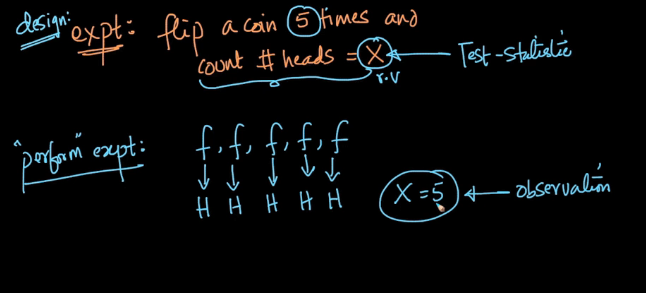 design: expt: flip a coin 5 times and
count # heads = X ← Test-statistic
r.v
"perform" expt: f, f, f, f, f
H H H H H
X = 5 ← observation